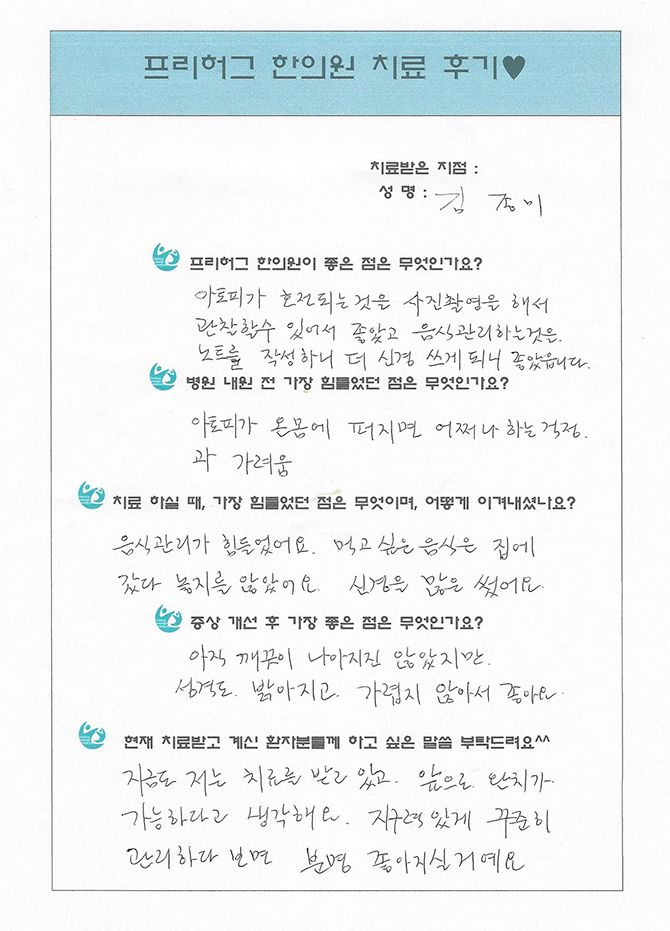 프리허그 한의원 치료 후기♥
치료받은 지점 :
성 명 : 김 종미
프리허그 한의원이 좋은 점은 무엇인가요?
아토피가 호전되는것을 사진촬영을 해서
관찰할수 있어서 좋았고 음식관리하는것은.
노트를 작성하니 더 신경 쓰게 되니 좋았읍니다.
병원 내원 전 가장 힘들었던 점은 무엇인가요?
아토피가 온몸에 퍼지면 어쩌나 하는 걱정.
과 가려움
치료 하실 때, 가장 힘들었던 점은 무엇이며, 어떻게 이겨내셨나요?
음식관리가 힘들었어요. 먹고 싶은 음식은 집에
갔다 놓지를 않았어요. 신경을 많은 썼어요.
증상 개선 후 가장 좋은 점은 무엇인가요?
아직 깨끗이 나아지진 않았지만.
성격도. 밝아지고. 가렵지 않아서 좋아요.
현재 치료받고 계신 환자분들께 하고 싶은 말씀 부탁드려요^^
지금도 저는 치료를 받고 있고. 앞으로 완치가
가능하다고 생각해요. 지구력있게 꾸준히
관리하다 보면 분명 좋아지실거예요